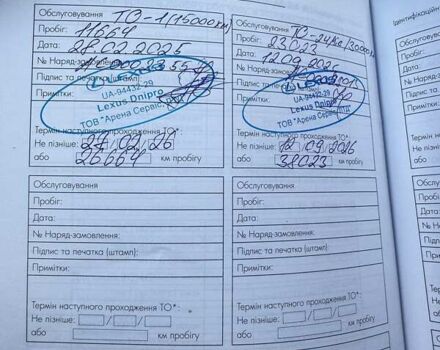 Обслуговування ТО-1 (15000км)
Пробіг: 11664
Дата: 28.02.2025
№ Наряд-замовлення:
Підпис та печатка (штамп):
Примітки:
UA-94432-29
Lexus Dnipro
ТОВ "Арена Сервіс"
Термін наступного проходження ТО*:
Не пізніше: 27/02/26
або 26664 км пробігу
Обслуговування ТО-2
Пробіг: 23023
Дата: 12.09.2025
№ Наряд-замовлення:
Підпис та печатка (штамп):
Примітки:
UA-94432-29
Lexus Dnipro
ТОВ "Арена Сервіс"
Термін наступного проходження ТО*:
Не пізніше: 12/09/2026
або 38023 км пробігу
Обслуговування
Пробіг:
Дата:
№ Наряд-замовлення:
Підпис та печатка (штамп):
Примітки:
Термін наступного проходження ТО*:
Не пізніше: / /
або км пробігу
Обслуговування
Пробіг:
Дата:
№ Наряд-замовлення:
Підпис та печатка (штамп):
Примітки:
Термін наступного проходження ТО*:
Не пізніше: / /
або км пробігу
Ідентифікаційн